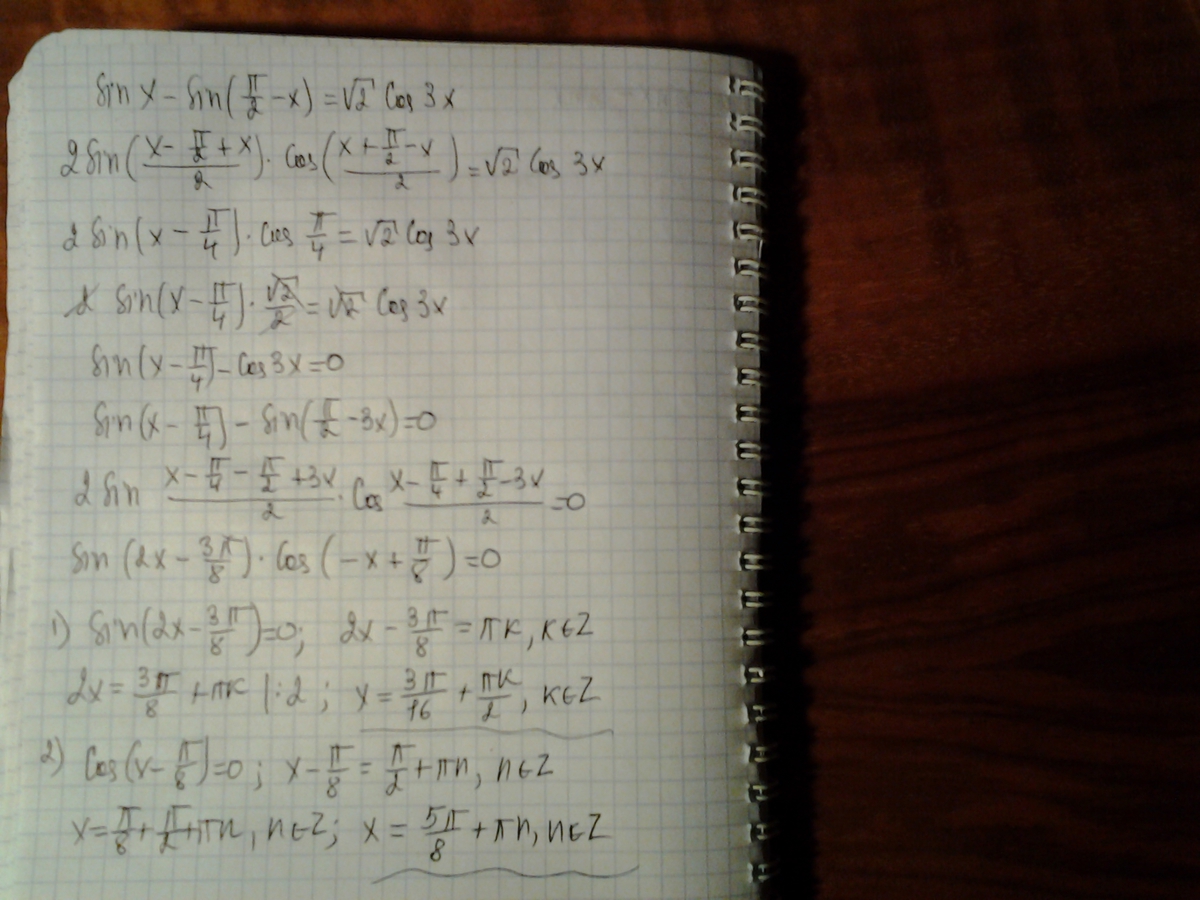 sin x - sin(π/2 - x) = √2 cos 3x
2 sin((x - π/2 + x)/2) · cos((x + π/2 - x)/2) = √2 cos 3x
2 sin(x - π/4) · cos π/4 = √2 cos 3x
2 sin(x - π/4) · √2/2 = √2 cos 3x
sin(x - π/4) - cos 3x = 0
sin(x - π/4) - sin(π/2 - 3x) = 0
2 sin (x - π/4 - π/2 + 3x)/2 · cos (x - π/4 + π/2 - 3x)/2 = 0
sin (2x - 3π/8) · cos (-x + π/8) = 0
1) sin(2x - 3π/8) = 0; 2x - 3π/8 = πk, k∈Z
2x = 3π/8 + πk |:2 ; x = 3π/16 + πk/2, k∈Z
2) cos(x - π/8) = 0; x - π/8 = π/2 + πn, n∈Z
x = π/8 + π/2 + πn, n∈Z; x = 5π/8 + πn, n∈Z